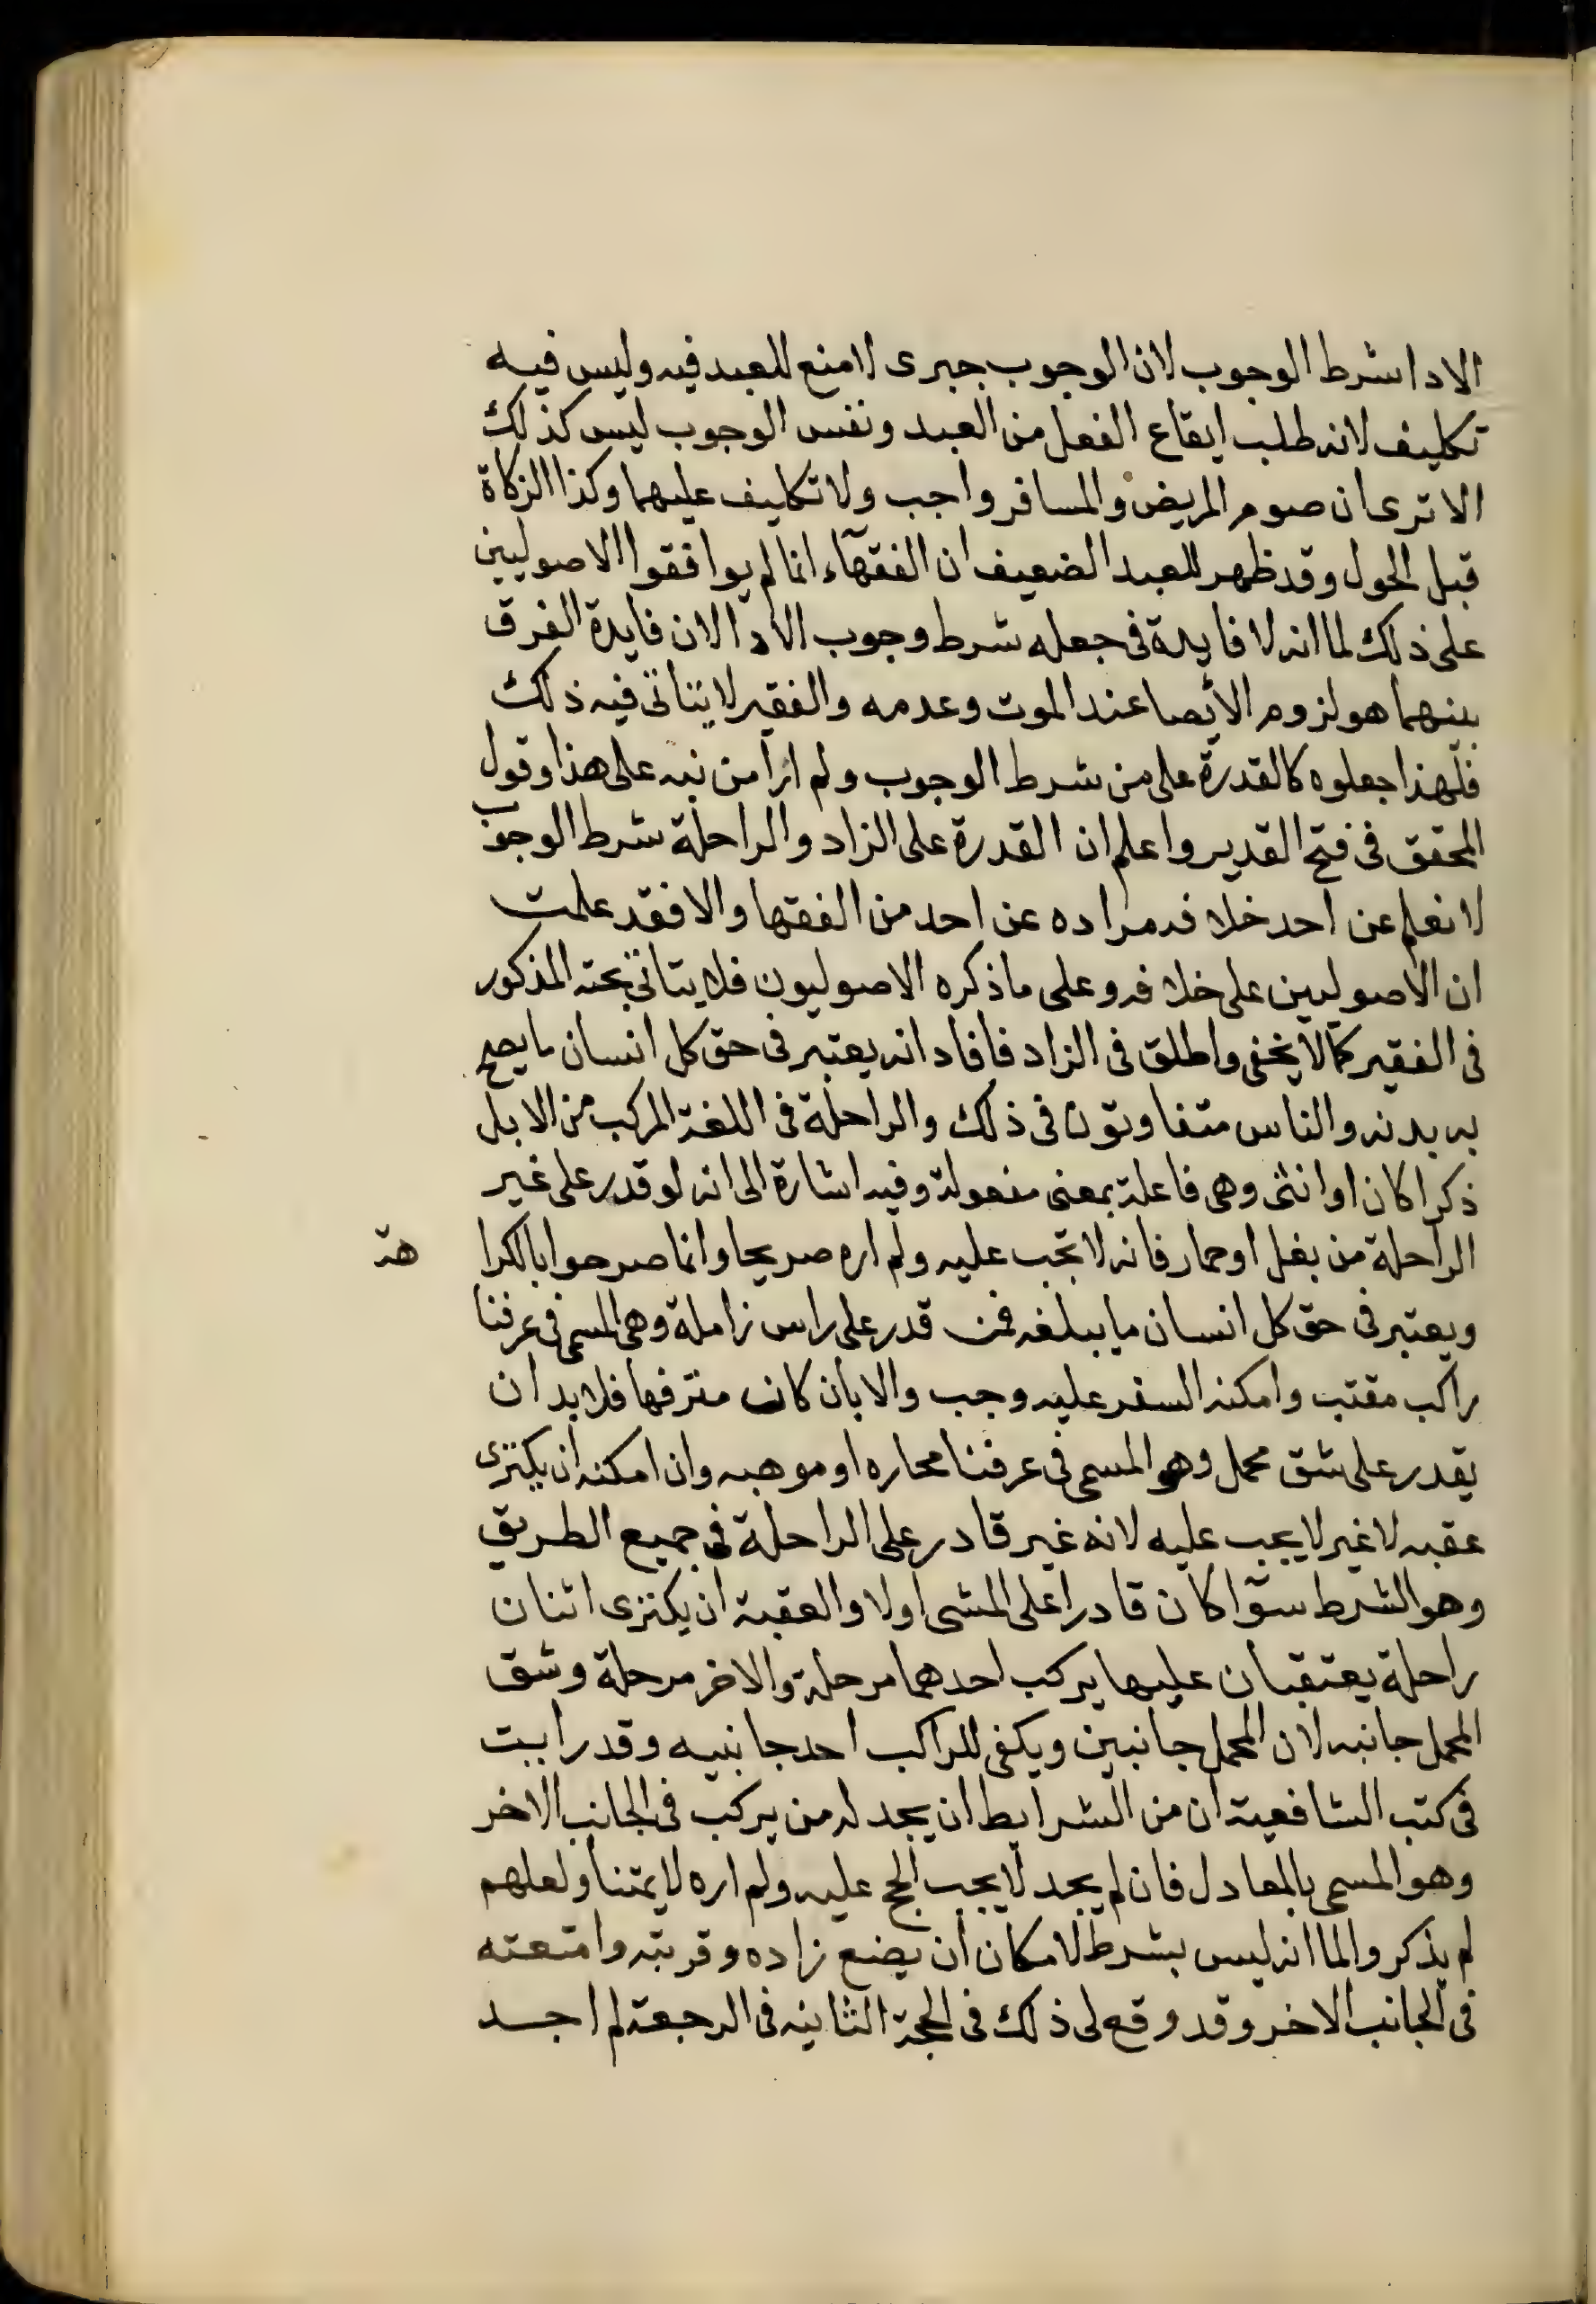 الادا شرط الوجوب لان الوجوب جبرى لا منع للعبد فيه وليس فيه
تكليف لانه طلب ايقاع الفعل من العبد ونفس الوجوب ليس كذلك
الا ترى ان صوم المريض والمسافر واجب ولا تكليف عليهما وكذا الزكاة
قبل الحول وقد ظهر للعبد الضعيف ان الفقهآء انما لم يوافقوا الاصوليين
على ذلك لما انه لا فايدة فى جعله شرط وجوب الادا لان فايدة الفرق
بينهما هو لزوم الايصا عند الموت وعدمه والفقير لا يتاتى فيه ذلك
فلهذا جعلوه كالقدرة على من شرط الوجوب ولم ار من نبه على هذا وقول
المحقق فى فتح القدير واعلم ان القدرة على الزاد والراحلة شرط الوجوب
لا نعلم عن احد خلافه مراده عن احد من الفقها والا فقد علمت
ان الاصوليين على خلافه وعلى ما ذكره الاصوليون فلا يتاتى بحثه المذكور
فى الفقير كما لا يخفى واطلق فى الزاد فافاد انه يعتبر فى حق كل انسان ما يصح
به بدنه والناس متفاوتون فى ذلك والراحلة فى اللغة المركب من الابل
ذكرا كان او انثى وهى فاعلة بمعنى مفعولة وفيه اشارة الى انه لو قدر على غير
الراحلة من بغل او حمار فانه لا تجب عليه ولم اره صريحا وانما صرحوا بالكرا هة
ويعتبر فى حق كل انسان ما يبلغه فمن قدر على راس زاملة وهى المسمى فى عرفنا
راكب مقتب وامكنه السفر عليه وجب والا بان كان مترفها فلا بد ان
يقدر على شق محمل وهو المسمى فى عرفنا محاره او موهيه وان امكنه ان يكترى
عقبه لا غير لا يجب عليه لانه غير قادر على الراحلة فى جميع الطريق
وهو الشرط سوآ كان قادرا على المشى اولا والعقبة ان يكترى اثنان
راحلة يعتقبان عليها يركب احدهما مرحلة والاخر مرحلة وشق
المحمل جانبه لان المحمل جانبين ويكفى للراكب احد جانبيه وقد رايت
فى كتب الشافعية ان من الشرايط ان يجد له من يركب فى الجانب الاخر
وهو المسمى بالمعادل فان لم يجد لا يجب الحج عليه ولم اره لايمتنا ولعلهم
لم يذكروا لما انه ليس بشرط لامكان ان يضع زاده وقربته وامتعته
فى الجانب الاخر وقد وقع لى ذلك فى الحجة الثانيه فى الرجعة لم اجد